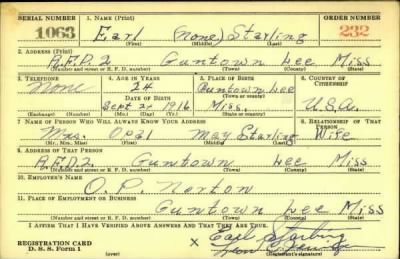 SERIAL NUMBER 1. NAME (Print) ORDER NUMBER
1063 Earl (None) Starling 232
(First) (Middle) (Last)
2. ADDRESS (Print)
R.F.D. 2 Guntown Lee Miss
(Number and street or R. F. D. number) (Town) (County) (State)
3. TELEPHONE 4. AGE IN YEARS 5. PLACE OF BIRTH 6. COUNTRY OF CITIZENSHIP
None 24 Guntown Lee
DATE OF BIRTH (Town or county)
Sept 2 1916 Miss. U.S.A.
(Exchange) (Number) (Mo.) (Day) (Yr.) (State or country)
7. NAME OF PERSON WHO WILL ALWAYS KNOW YOUR ADDRESS 8. RELATIONSHIP OF THAT PERSON
Mrs. Opal May Starling Wife
(Mr., Mrs., Miss) (First) (Middle) (Last)
9. ADDRESS OF THAT PERSON
R.F.D. 2 Guntown Lee Miss
(Number and street or R. F. D. number) (Town) (County) (State)
10. EMPLOYER'S NAME
O. P. Norton
11. PLACE OF EMPLOYMENT OR BUSINESS
Guntown Lee Miss
(Number and street or R. F. D. number) (Town) (County) (State)
I AFFIRM THAT I HAVE VERIFIED ABOVE ANSWERS AND THAT THEY ARE TRUE.
REGISTRATION CARD X Earl Starling
D. S. S. Form 1 (Registrant's signature)